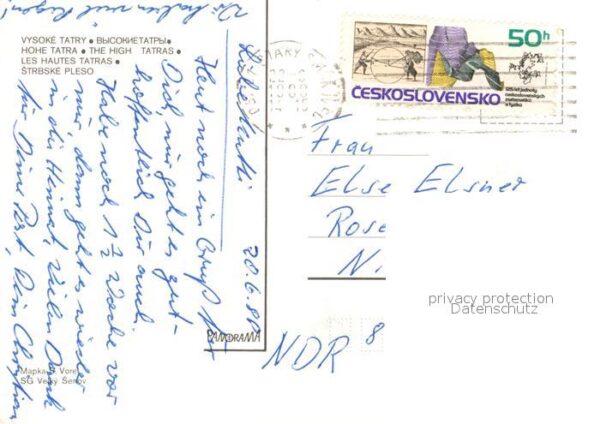 VYSOKÉ TATRY • ВЫСОКИЕ ТАТРЫ •
HOHE TATRA • THE HIGH TATRAS •
LES HAUTES TATRAS •
ŠTRBSKÉ PLESO
Wir haben viel Regen!
20.6.88
Liebe Mutti
Heut noch ein Gruß für
Dich, mir geht es gut -
hoffentlich Dir auch.
Habe noch 1½ Woche vor
mir, dann geht es wieder
in die Heimat. Vielen Dank
für Deine Post, Dein Christian
PANORAMA
Mapka
SG Velký Šenov
50h
ČESKOSLOVENSKO
125 let jednoty
československých
matematiků
a fyziků
Frau
Else Elsner
Rose
N
NDR 8
privacy protection
Datenschutz